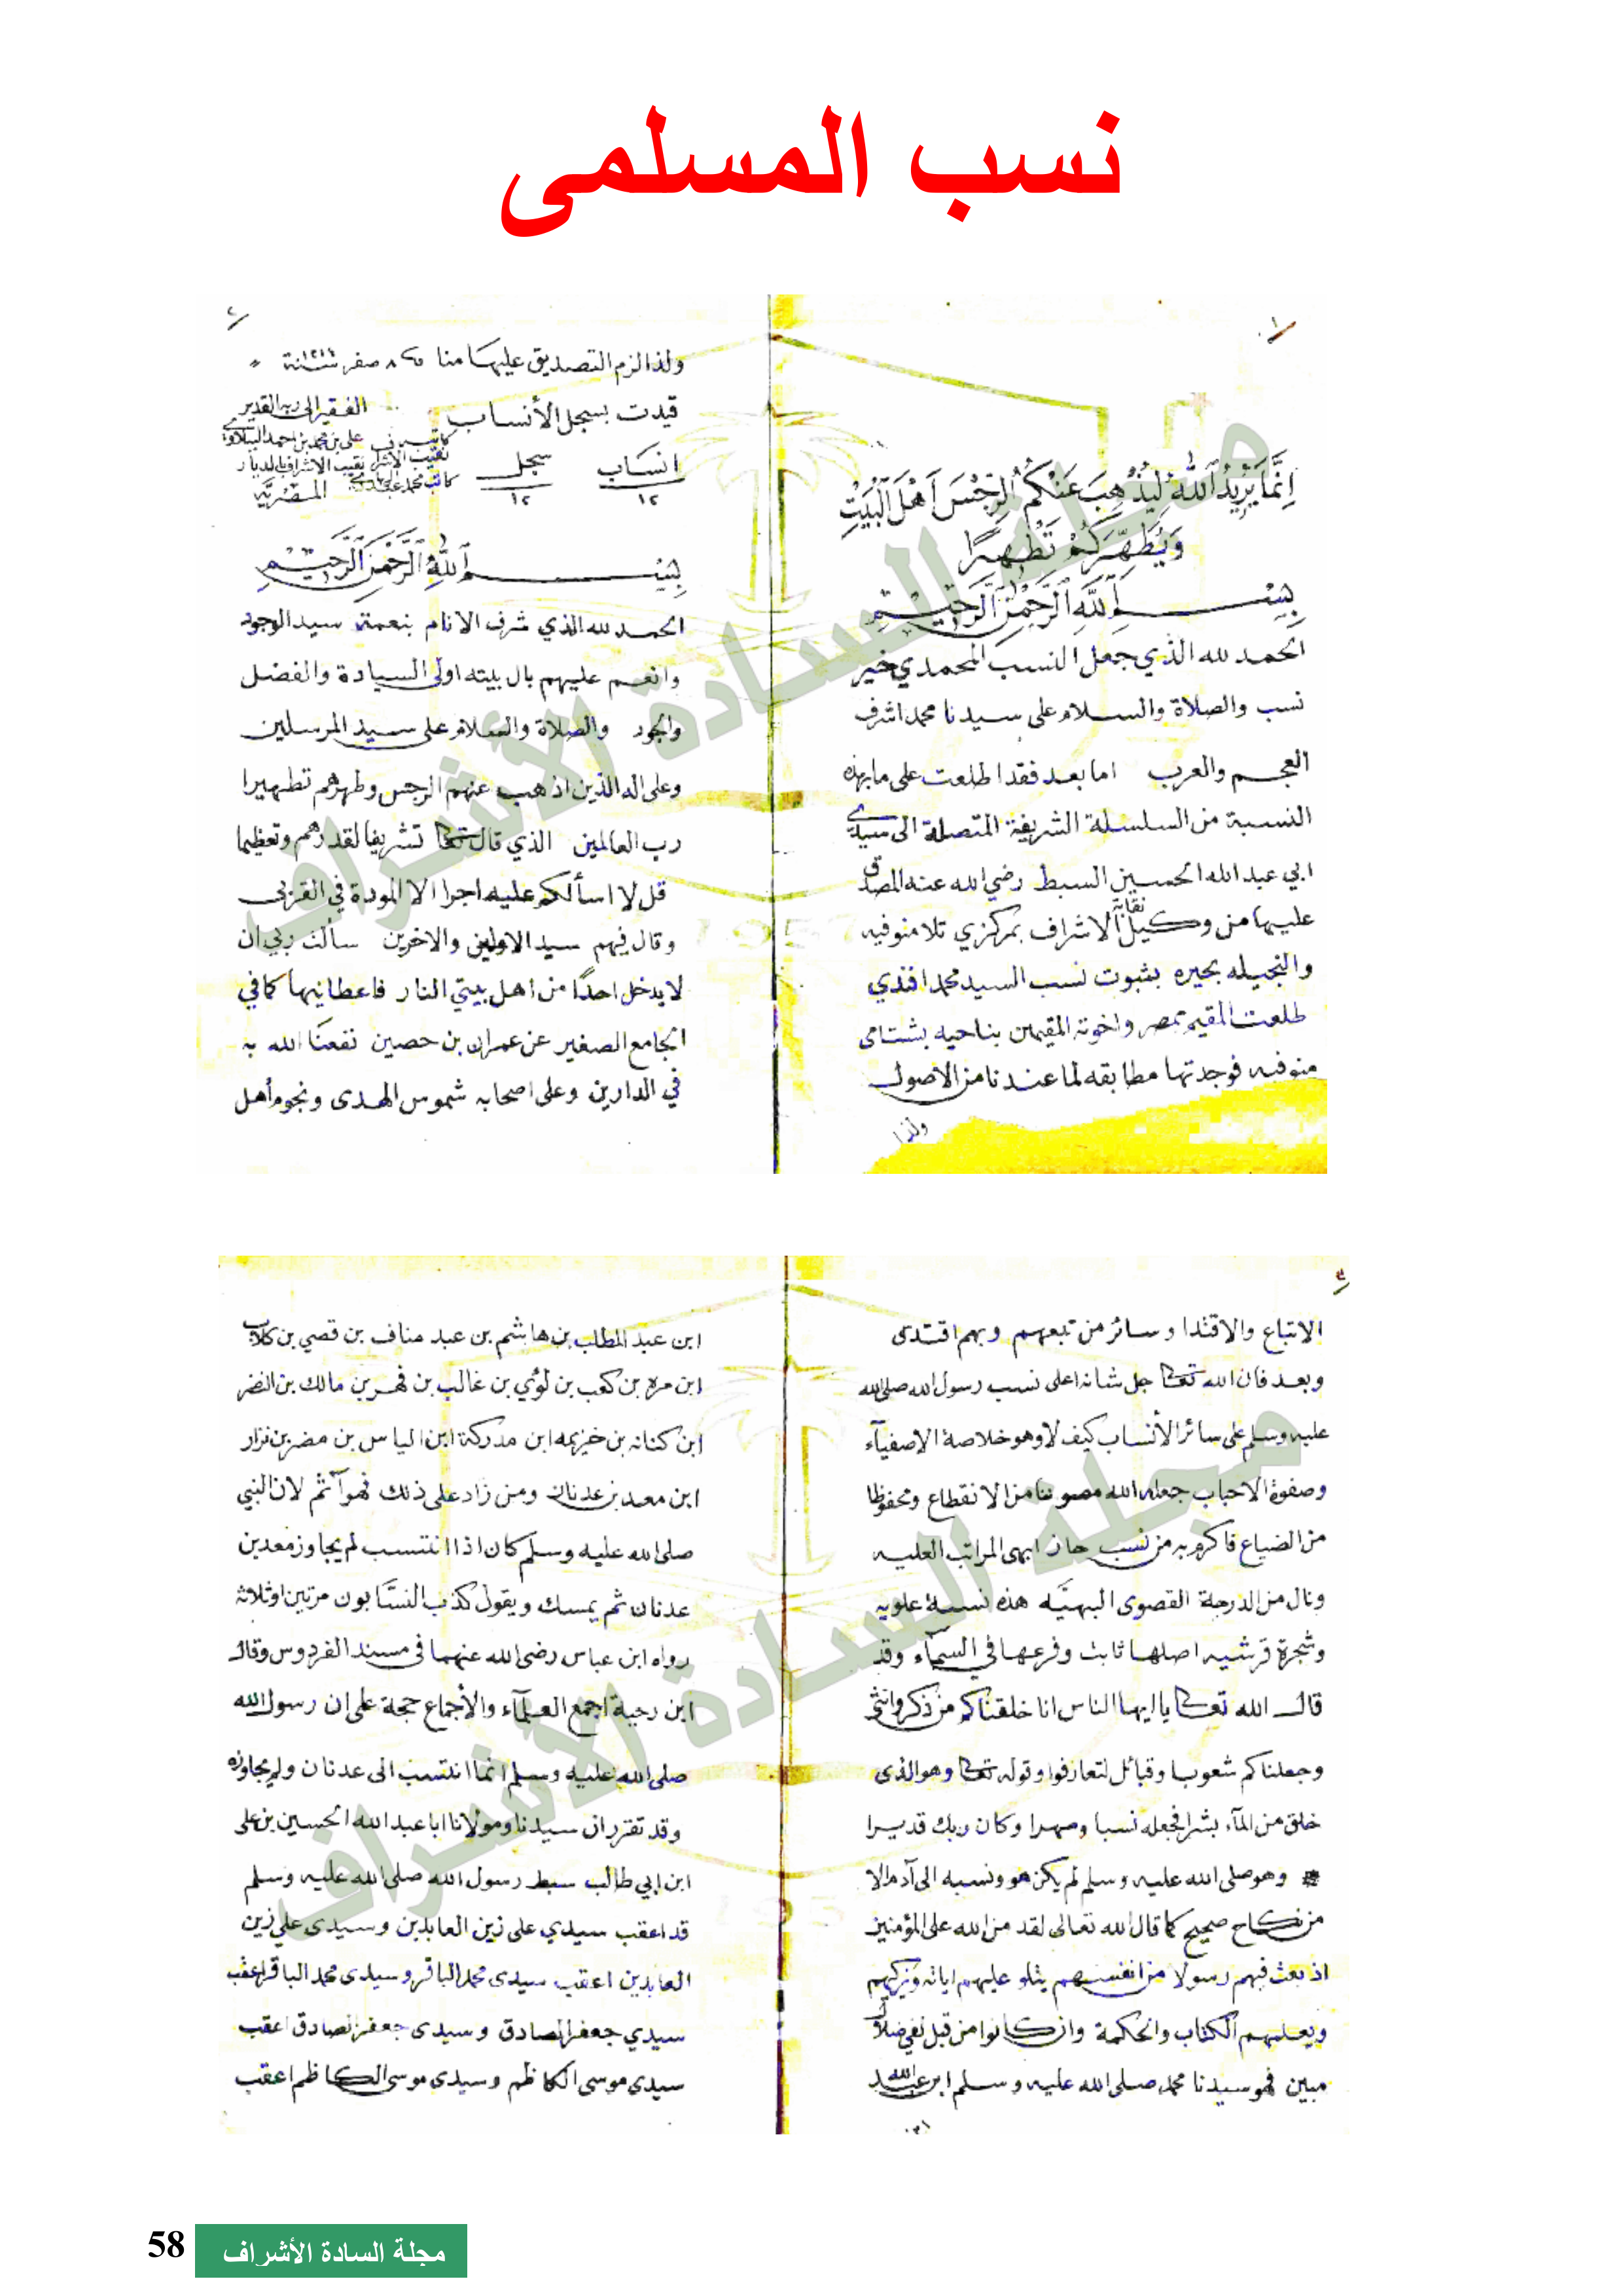 نسب المسلمى
١
إِنَّمَا يُرِيدُ ٱللَّهُ لِيُذْهِبَ عَنكُمُ ٱلرِّجْسَ أَهْلَ ٱلْبَيْتِ
وَيُطَهِّرَكُمْ تَطْهِيرًا
بِسْمِ ٱللَّهِ ٱلرَّحْمٰنِ ٱلرَّحِيمِ
الحمد لله الذي جعل النسب المحمدي خير
نسب والصلاة والسلام على سيدنا محمد اشرف
العجم والعرب اما بعد فقد اطلعت على ما بهذه
النسبة من السلسلة الشريفة المتصلة الى سيدى
ابي عبد الله الحسين السبط رضي الله عنه المصدق
عليها من وكيل نقابة الاشراف بمركزي تلا منوفيه
والنجيله بحيره بثبوت نسب السيد محمد افندي
طلعت المقيم بمصر واخوته المقيمن بناحيه بشتامى
منوفيه فوجدتها مطابقه لما عندنا من الاصول
ولذا
٢
ولذا لزم التصديق عليها منا صفر سنة
قيدت بسجل الأنساب
انساب سجل
١٢ ١٢
الفقير الى ربه القدير
على بن محمد بن احمد الببلاوى
نقيب الاشراف بالديار
المصرية
بِسْمِ ٱللَّهِ ٱلرَّحْمٰنِ ٱلرَّحِيمِ
الحمد لله الذي شرف الانام بنعمة سيد الوجود
وانعم عليهم بال بيته اولى السيادة والفضل
والجود والصلاة والسلام على سيد المرسلين
وعلى اله الذين اذهب عنهم الرجس وطهرهم تطهيرا
رب العالمين الذي قال تعالى تشريفا لقدرهم وتعظيما
قل لا اسألكم عليه اجرا الا المودة في القربى
وقال فيهم سيد الاولين والاخرين سألت ربي ان
لا يدخل احدًا من اهل بيتي النار فاعطانيها كما في
الجامع الصغير عن عمران بن حصين نفعنا الله به
في الدارين وعلى اصحابه شموس الهدى ونجوم أهل
٣
الاتباع والاقتدا وسائر من تبعهم وبهم اقتدى
وبعد فان الله تعالى جل شانه اعلى نسب رسول الله صلى الله
عليه وسلم على سائر الأنساب كيف لا وهو خلاصة الاصفيآء
وصفوة الاحباب جعله الله مصونا من الانقطاع ومحفوظا
من الضياع فاكرم به من نسب حان ابهى المراتب العليه
ونال من الدرجة القصوى البهيَّه هذه نسبة علويه
وشجرة قرشيه اصلها ثابت وفرعها في السمآء وقد
قال الله تعالى يا ايها الناس انا خلقناكم من ذكر وانثى
وجعلناكم شعوبا وقبائل لتعارفوا وقوله تعالى وهو الذى
خلق من المآء بشرا فجعله نسبا وصهرا وكان ربك قديرا
وهو صلى الله عليه وسلم لم يكن هو ونسبه الى آدم الا
من نكاح صحيح كما قال الله تعالى لقد من الله على المؤمنين
اذ بعث فيهم رسولا من انفسهم يتلو عليهم اياته ويزكيهم
ويعلمهم الكتاب والحكمة وان كانوا من قبل لفي ضلال
مبين فهو سيدنا محمد صلى الله عليه وسلم ابن عبد الله
ابن
ابن عبد المطلب بن هاشم بن عبد مناف بن قصي بن كلاب
ابن مره بن كعب بن لؤي بن غالب بن فهر بن مالك بن النضر
ابن كنانه بن خزيمه ابن مدركة ابن الياس بن مضر بن نزار
ابن معد بن عدنان ومن زاد على ذلك فهو آثم لان النبي
صلى الله عليه وسلم كان اذا انتسب لم يجاوز معد بن
عدنان ثم يمسك ويقول كذب النسَّابون مرتين او ثلاثة
رواه ابن عباس رضى الله عنهما فى مسند الفردوس وقال
ابن رحية اجمع العلمآء والأجماع حجة على ان رسول الله
صلى الله عليه وسلم انما انتسب الى عدنان ولم يجاوزه
وقد تقرر ان سيدنا ومولانا ابا عبد الله الحسين بن على
ابن ابي طالب سبط رسول الله صلى الله عليه وسلم
قد اعقب سيدي على زين العابدين وسيدى علي زين
العابدين اعقب سيدى محمد الباقر وسيدى محمد الباقر اعقب
سيدي جعفر الصادق وسيدى جعفر الصادق اعقب
سيدى موسى الكاظم وسيدى موسى الكاظم اعقب
مجلة السادة الأشراف
مجلة السادة الأشراف
58 مجلة السادة الأشراف